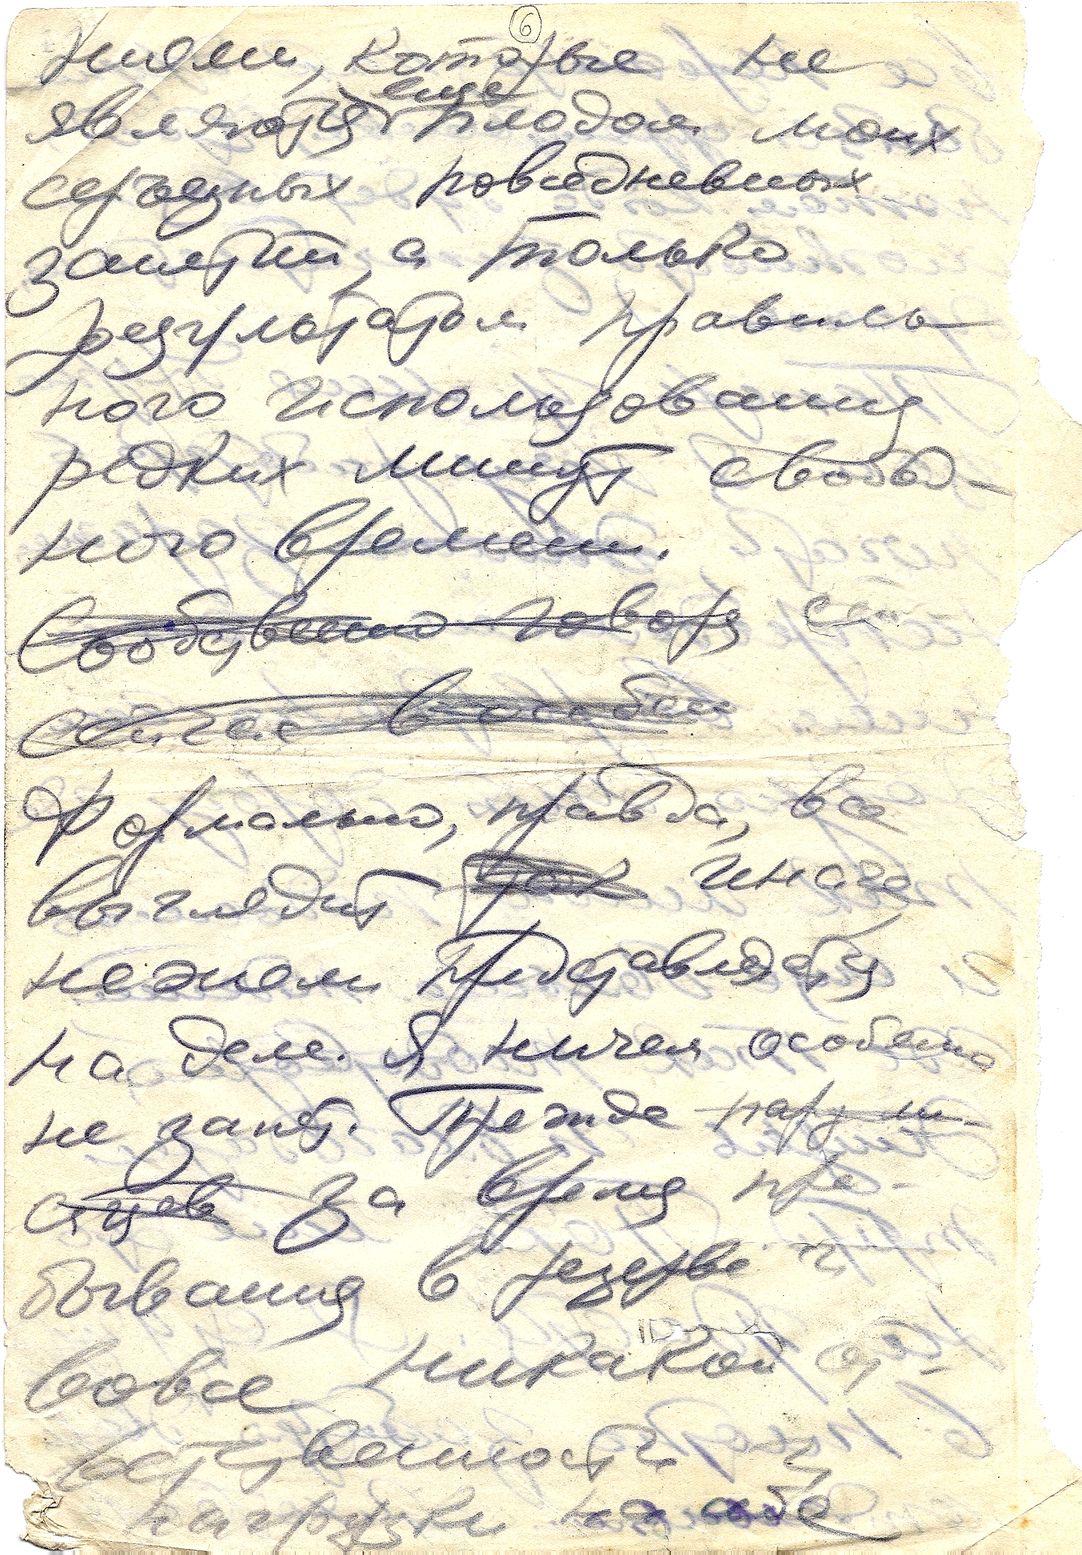 6
ниями, которые не
являются еще плодом моих
серьезных повседневных
занятий, а только
результатом правиль-
ного использования
редких минут свобод-
ного времени.
Собственно говоря
сейчас в особен
Формально, правда, все
выглядит так иначе,
нежели представляется
на деле. Я ничем особенно
не занят. Прежде
за время пре-
бывания в резерве и
вовсе никакой от-
ветственности и
нагрузки на себе